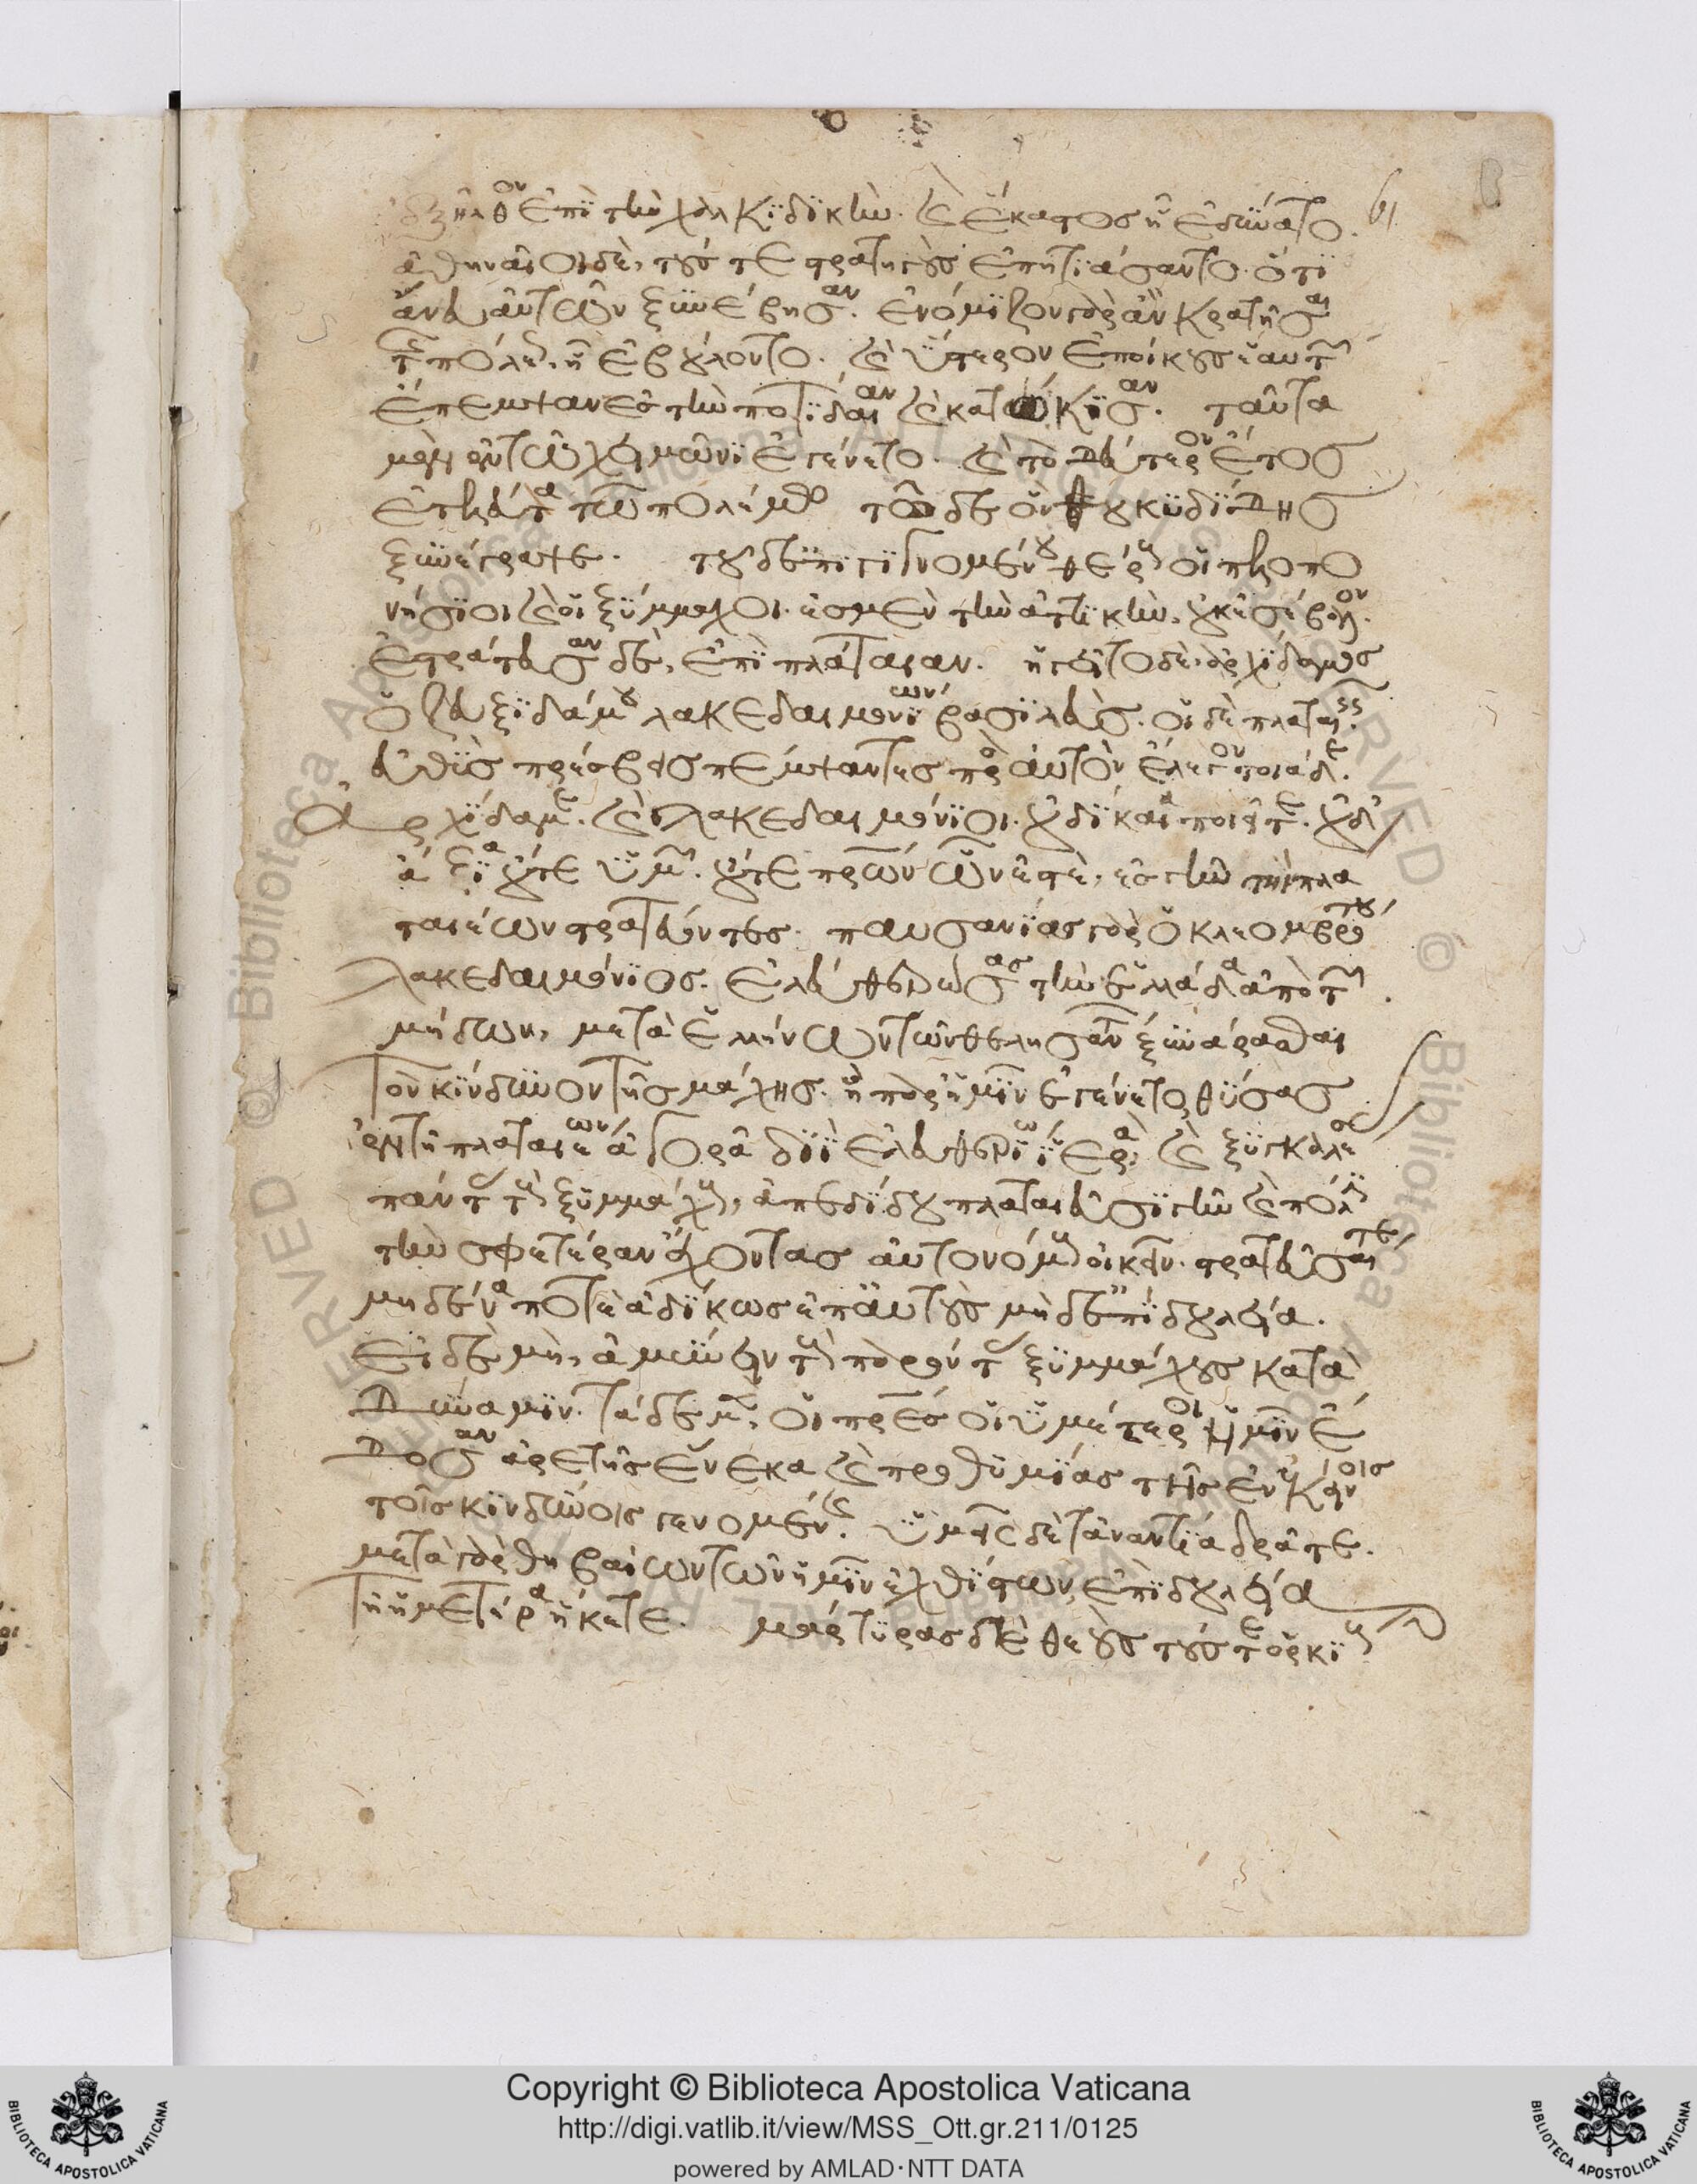 ἐξῆλθον ἐπὶ τὴν χαλκιδικὴν. καὶ ἕκαστος ἧ ἐδύνατο. 61
ἀθηναῖοι δὲ, τούς τε στρατηγοὺς ἐπητιάσαντο. ὅτι
ἄνευ αὐτῶν ξυνέβησαν. ἐνόμιζον γὰρ ἂν κρατῆσαι
τῆς πόλεως, ἧ ἐβούλοντο. καὶ ὕστερον ἐποίκους ἑαυτῶν
ἔπεμψαν ἐς τὴν ποτίδαιαν καὶ κατώκισαν. ταῦτα
μὲν ἐν τῶ χειμῶνι ἐγένετο. καὶ τὸ δεύτερον ἔτος
ἐτελεύτα τῶ πολέμω τῶδε ὃν θουκυδίδης
ξυνέγραψε. τοῦ δ' ἐπιγιγνομένου θέρους οἱ πελοπο
νήσιοι καὶ οἱ ξύμμαχοι. ἐς μὲν τὴν ἀττικὴν, οὐκ ἐσέβαλον.
ἐστράτευσαν δὲ, ἐπὶ πλάταιαν. ἡγεῖτο δὲ, ἀρχίδαμος
ὁ ζευξιδάμου λακεδαιμονίων βασιλεὺς. οἱ δὲ πλαταιῆς.
εὐθὺς πρέσβεις πέμψαντες πρὸς αὐτὸν ἔλεγον τοιάδε.
Ἀρχίδαμε. καὶ λακεδαιμόνιοι. οὐ δίκαια ποιεῖτε. οὐδ'
ἄξια οὔτε ὑμῶν. οὔτε πρων ὧν ἐστὲ, ἐς γῆν τὴν πλα
ταιέων στρατεύοντες. παυσανίας γὰρ ὁ κλεομβρότου
λακεδαιμόνιος. ἐλευθερώσας τὴν ἑλλάδα ἀπὸ τῶν
μήδων, μετὰ ἑλλήνων τῶν ἐθελησάντων ξυνάρασθαι
τὸν κίνδυνον τῆς μάχης. ἣ παρ' ἡμῖν ἐγένετο, θύσας
ἐν τῆ πλαταιέων ἀγορᾶ διῒ ἐλευθερίω ἱερὰ, καὶ ξυγκαλέσας
πάντας τοὺς ξυμμάχους, ἀπεδίδου πλαταιεῦσι γῆν καὶ πόλιν
τὴν σφετέραν ἔχοντας αὐτονόμους οἰκεῖν. στρατεῦσαί τε
μηδένα ποτὲ ἀδίκως ἐπ' αὐτοὺς μὴδ' ἐπὶ δουλεία.
εἰ δὲ μὴ, ἀμύνειν τοὺς παρόντας ξυμμάχους κατὰ
δύναμιν. τάδε μὲν, οἱ πρες οἱ ὑμέτεροι ἡμῖν ἔ
δοσαν ἀρετῆς ἕνεκα καὶ προθυμίας τῆς ἐν ἐκείνοις
τοῖς κινδύνοις γενομένης. ὑμεῖς δὲ τἀναντία δρᾶτε.
μετὰ γὰρ θηβαίων τῶν ἡμῖν ἐχθίστων, ἐπὶ δουλεία
τῆ ἡμετέρα ἥκετε. μάρτυρας δὲ θεοὺς τούς τε ὁρκίους